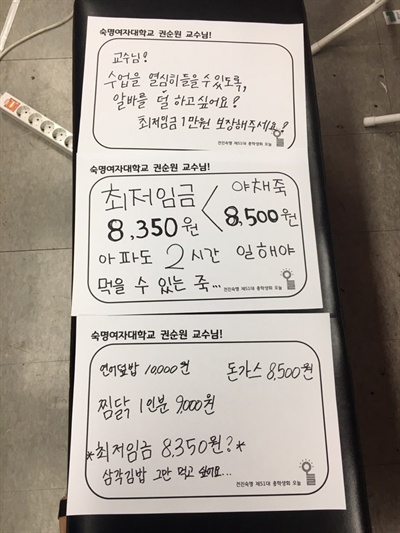 숙명여자대학교 권순원 교수님!
교수님!
수업을 열심히 들을 수 있도록,
알바를 덜 하고싶어요?
최저임금 1만원 보장해주세요?
전진숙명 제51대 총학생회 오늘
숙명여자대학교 권순원 교수님!
최저임금 < 야채죽
8,350원 8,500원
아파도 2시간 일해야
먹을 수 있는 죽...
전진숙명 제51대 총학생회 오늘
숙명여자대학교 권순원 교수님!
연어덮밥 10,000원 돈가스 8,500원
찜닭 1인분 9,000원
*최저임금 8,350원?*
삼각김밥 그만 먹고 싶어요...
전진숙명 제51대 총학생회 오늘